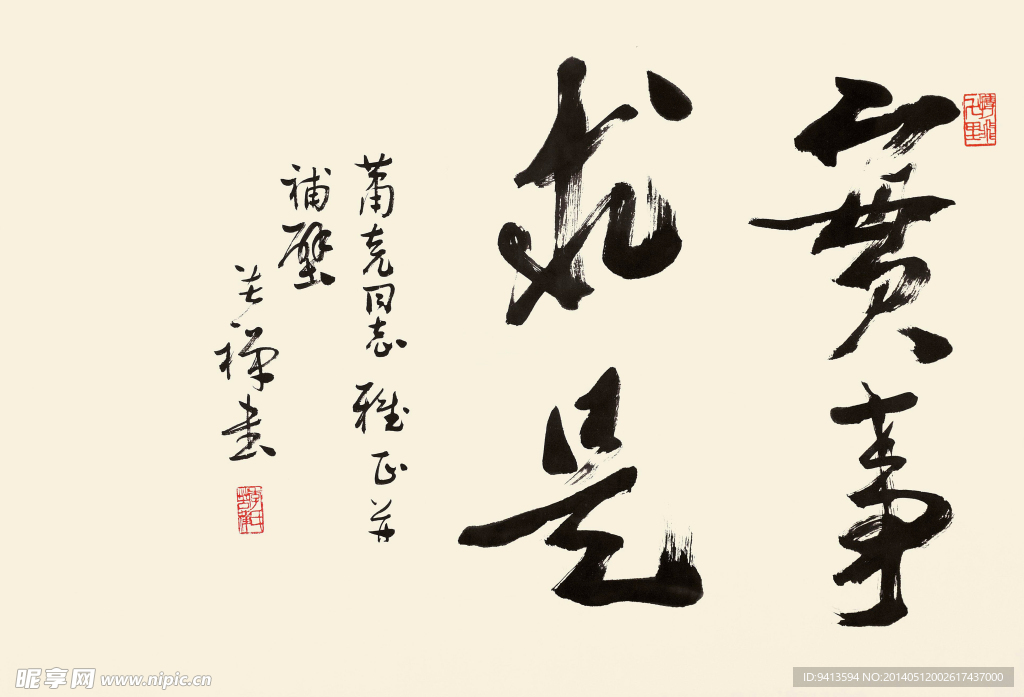 實事
求是
蕭克同志 雅正並
補壁
苦禪書
李氏苦禪
昵享网 www.nipic.cn
ID:9413594 NO:20140512002617437000